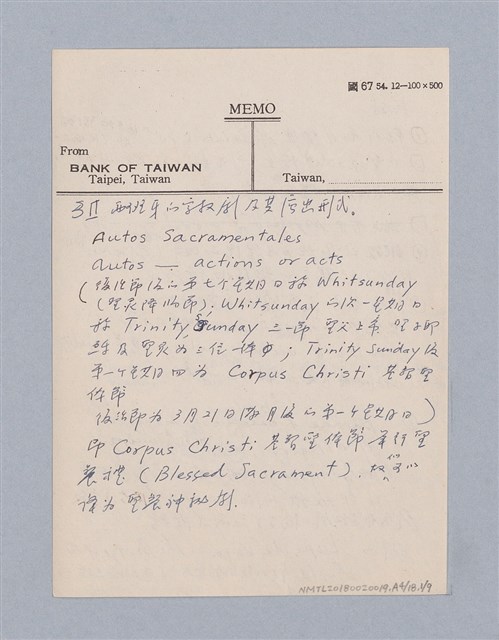 國 67 54. 12—100×500
MEMO
From
BANK OF TAIWAN
Taipei, Taiwan
Taiwan,
西班牙的宗教劇及其演出形式。
Autos Sacramentales
autos — actions or acts
(復活節後的第七个星期日称 Whitsunday
(聖灵降临節). Whitsunday 的次一星期日
称 Trinity Sunday 三一節 聖父上帝 聖子耶
穌及聖灵为三位一体 ; Trinity Sunday 後
第一个星期四为 Corpus Christi 基督聖
体節
復活節为3月21日後月後的第一个星期日)
即 Corpus Christi 基督聖体節举行聖
餐禮 (Blessed Sacrament). 故可以
譯为聖餐神秘劇.
NMTL20180020019.A4/18.1/9